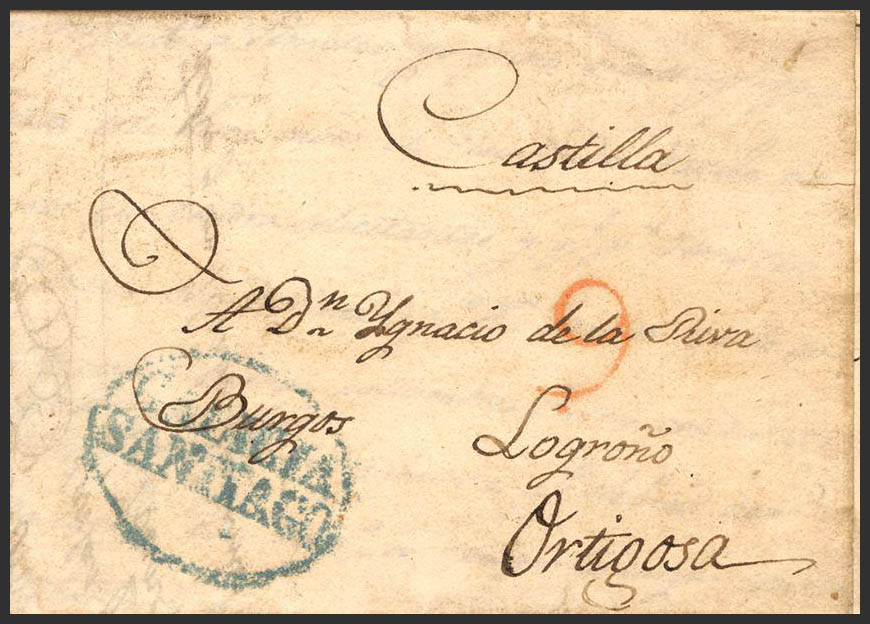 Castilla
A Dn Ygnacio de la Riva
9
Burgos
Logroño
Ortigosa
GALICIA
SANTIAGO